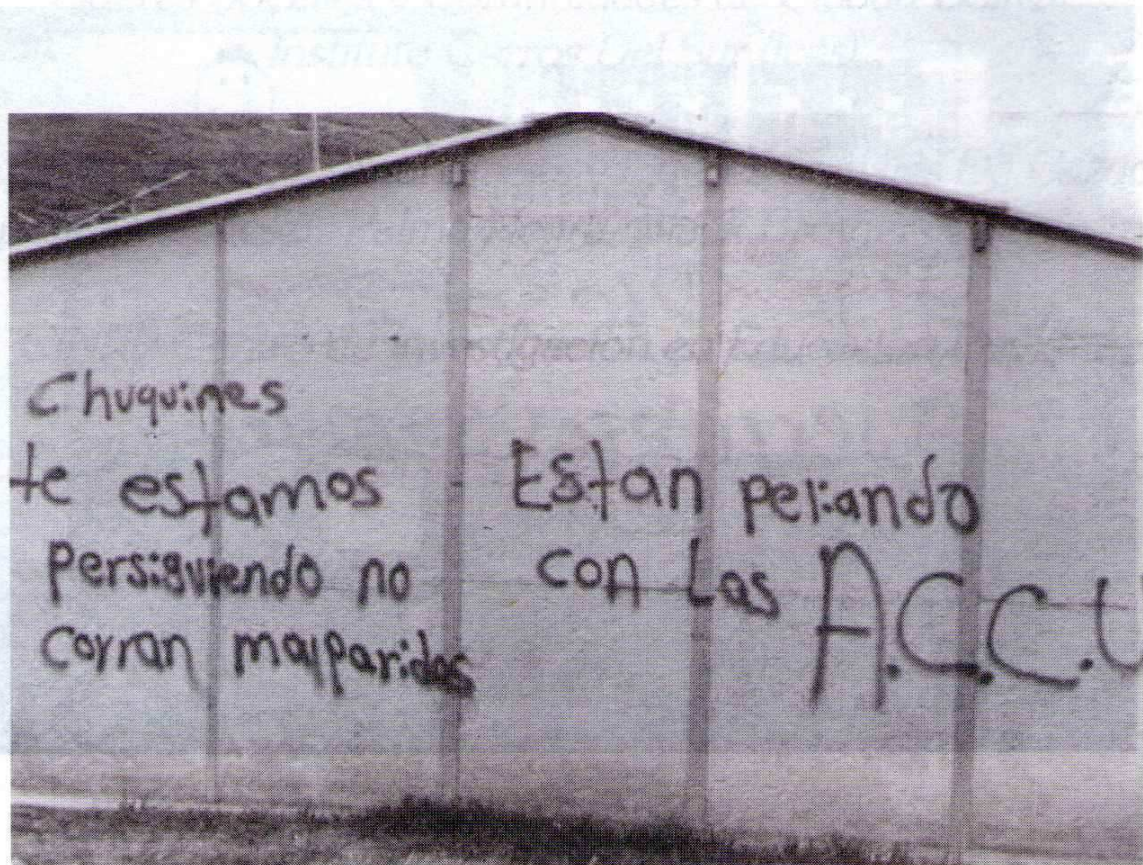 Chuquines
te estamos
persiguiendo no
corran malparidos
Estan peliando
con las A.C.C.U